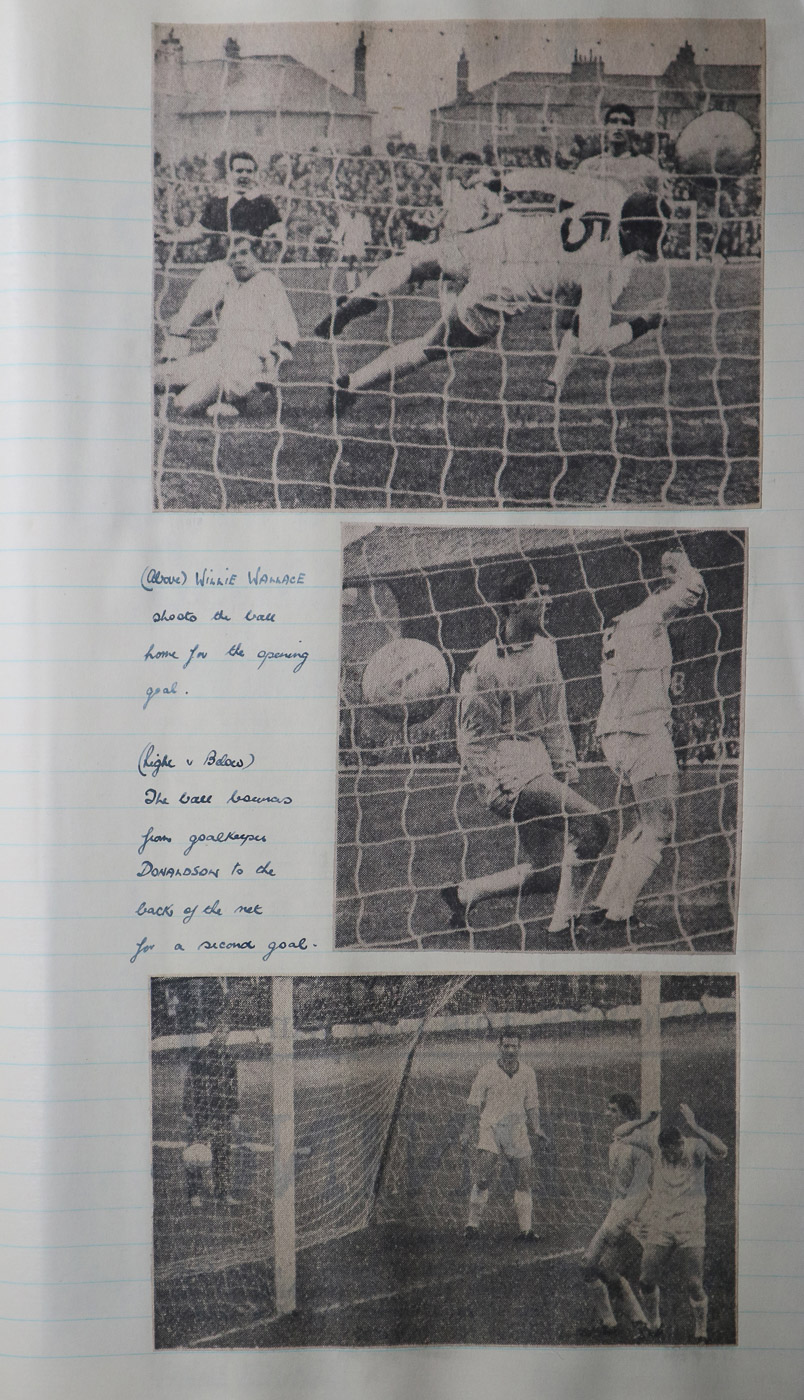 5
(Above) WILLIE WALLACE
shoots the ball
home for the opening
goal.
(Right & Below)
The ball bounces
from goalkeeper
DONALDSON to the
back of the net
for a second goal.
8